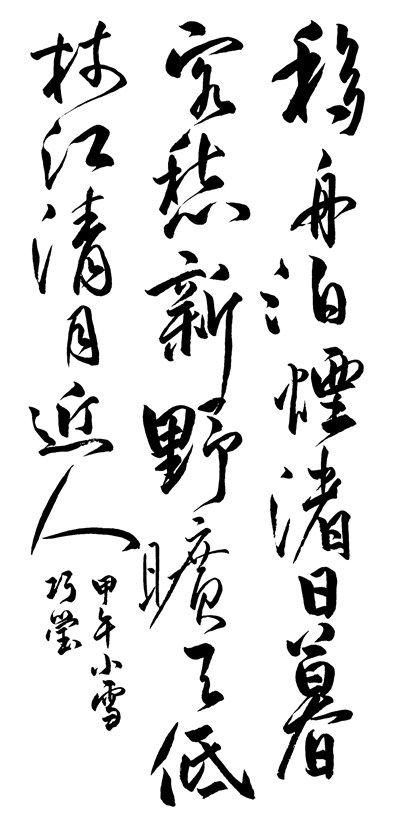 移舟泊煙渚日暮
客愁新野曠天低
樹江清月近人
甲午小雪
巧瑩